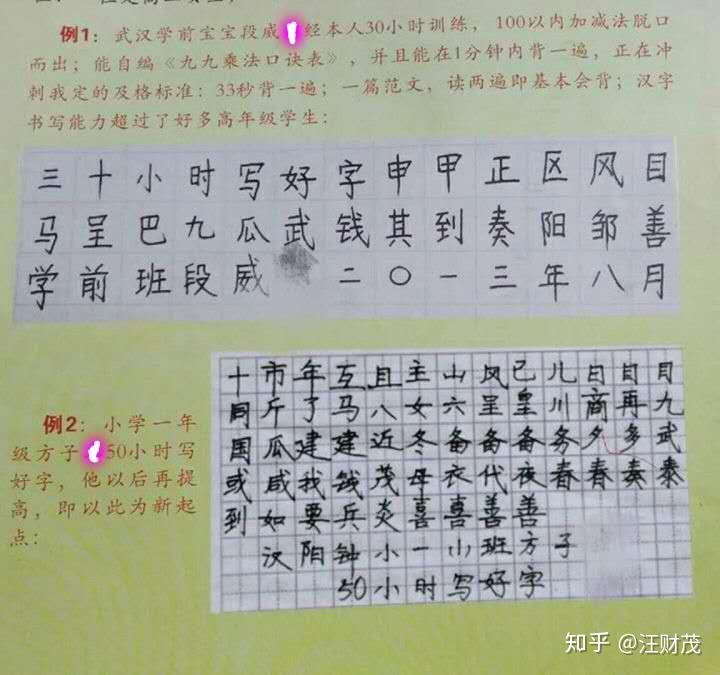 例1：武汉学前宝宝段威 经本人30小时训练，100以内加减法脱口
而出；能自编《九九乘法口诀表》，并且能在1分钟内背一遍，正在冲
刺我定的及格标准：33秒背一遍；一篇范文，读两遍即基本会背；汉字
书写能力超过了好多高年级学生：
三十小时写好字申甲正区风目
马呈巴九瓜武钱其到奏阳邹善
学前班段威 二〇一三年八月
例2：小学一年
级方子 50小时写
好字，他以后再提
高，即以此为新起
点：
十市年互且主山风已儿日目目
同斤了马八女六呈皇川商再九
国瓜建建近冬备备备务夕多武
或成我钱茂母衣代夜春春奏泰
到如要兵炎喜喜善善
汉阳钟小一小班方子
50小时写好字
知乎 @汪财茂